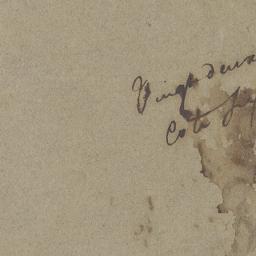 Vingt deux
Cote